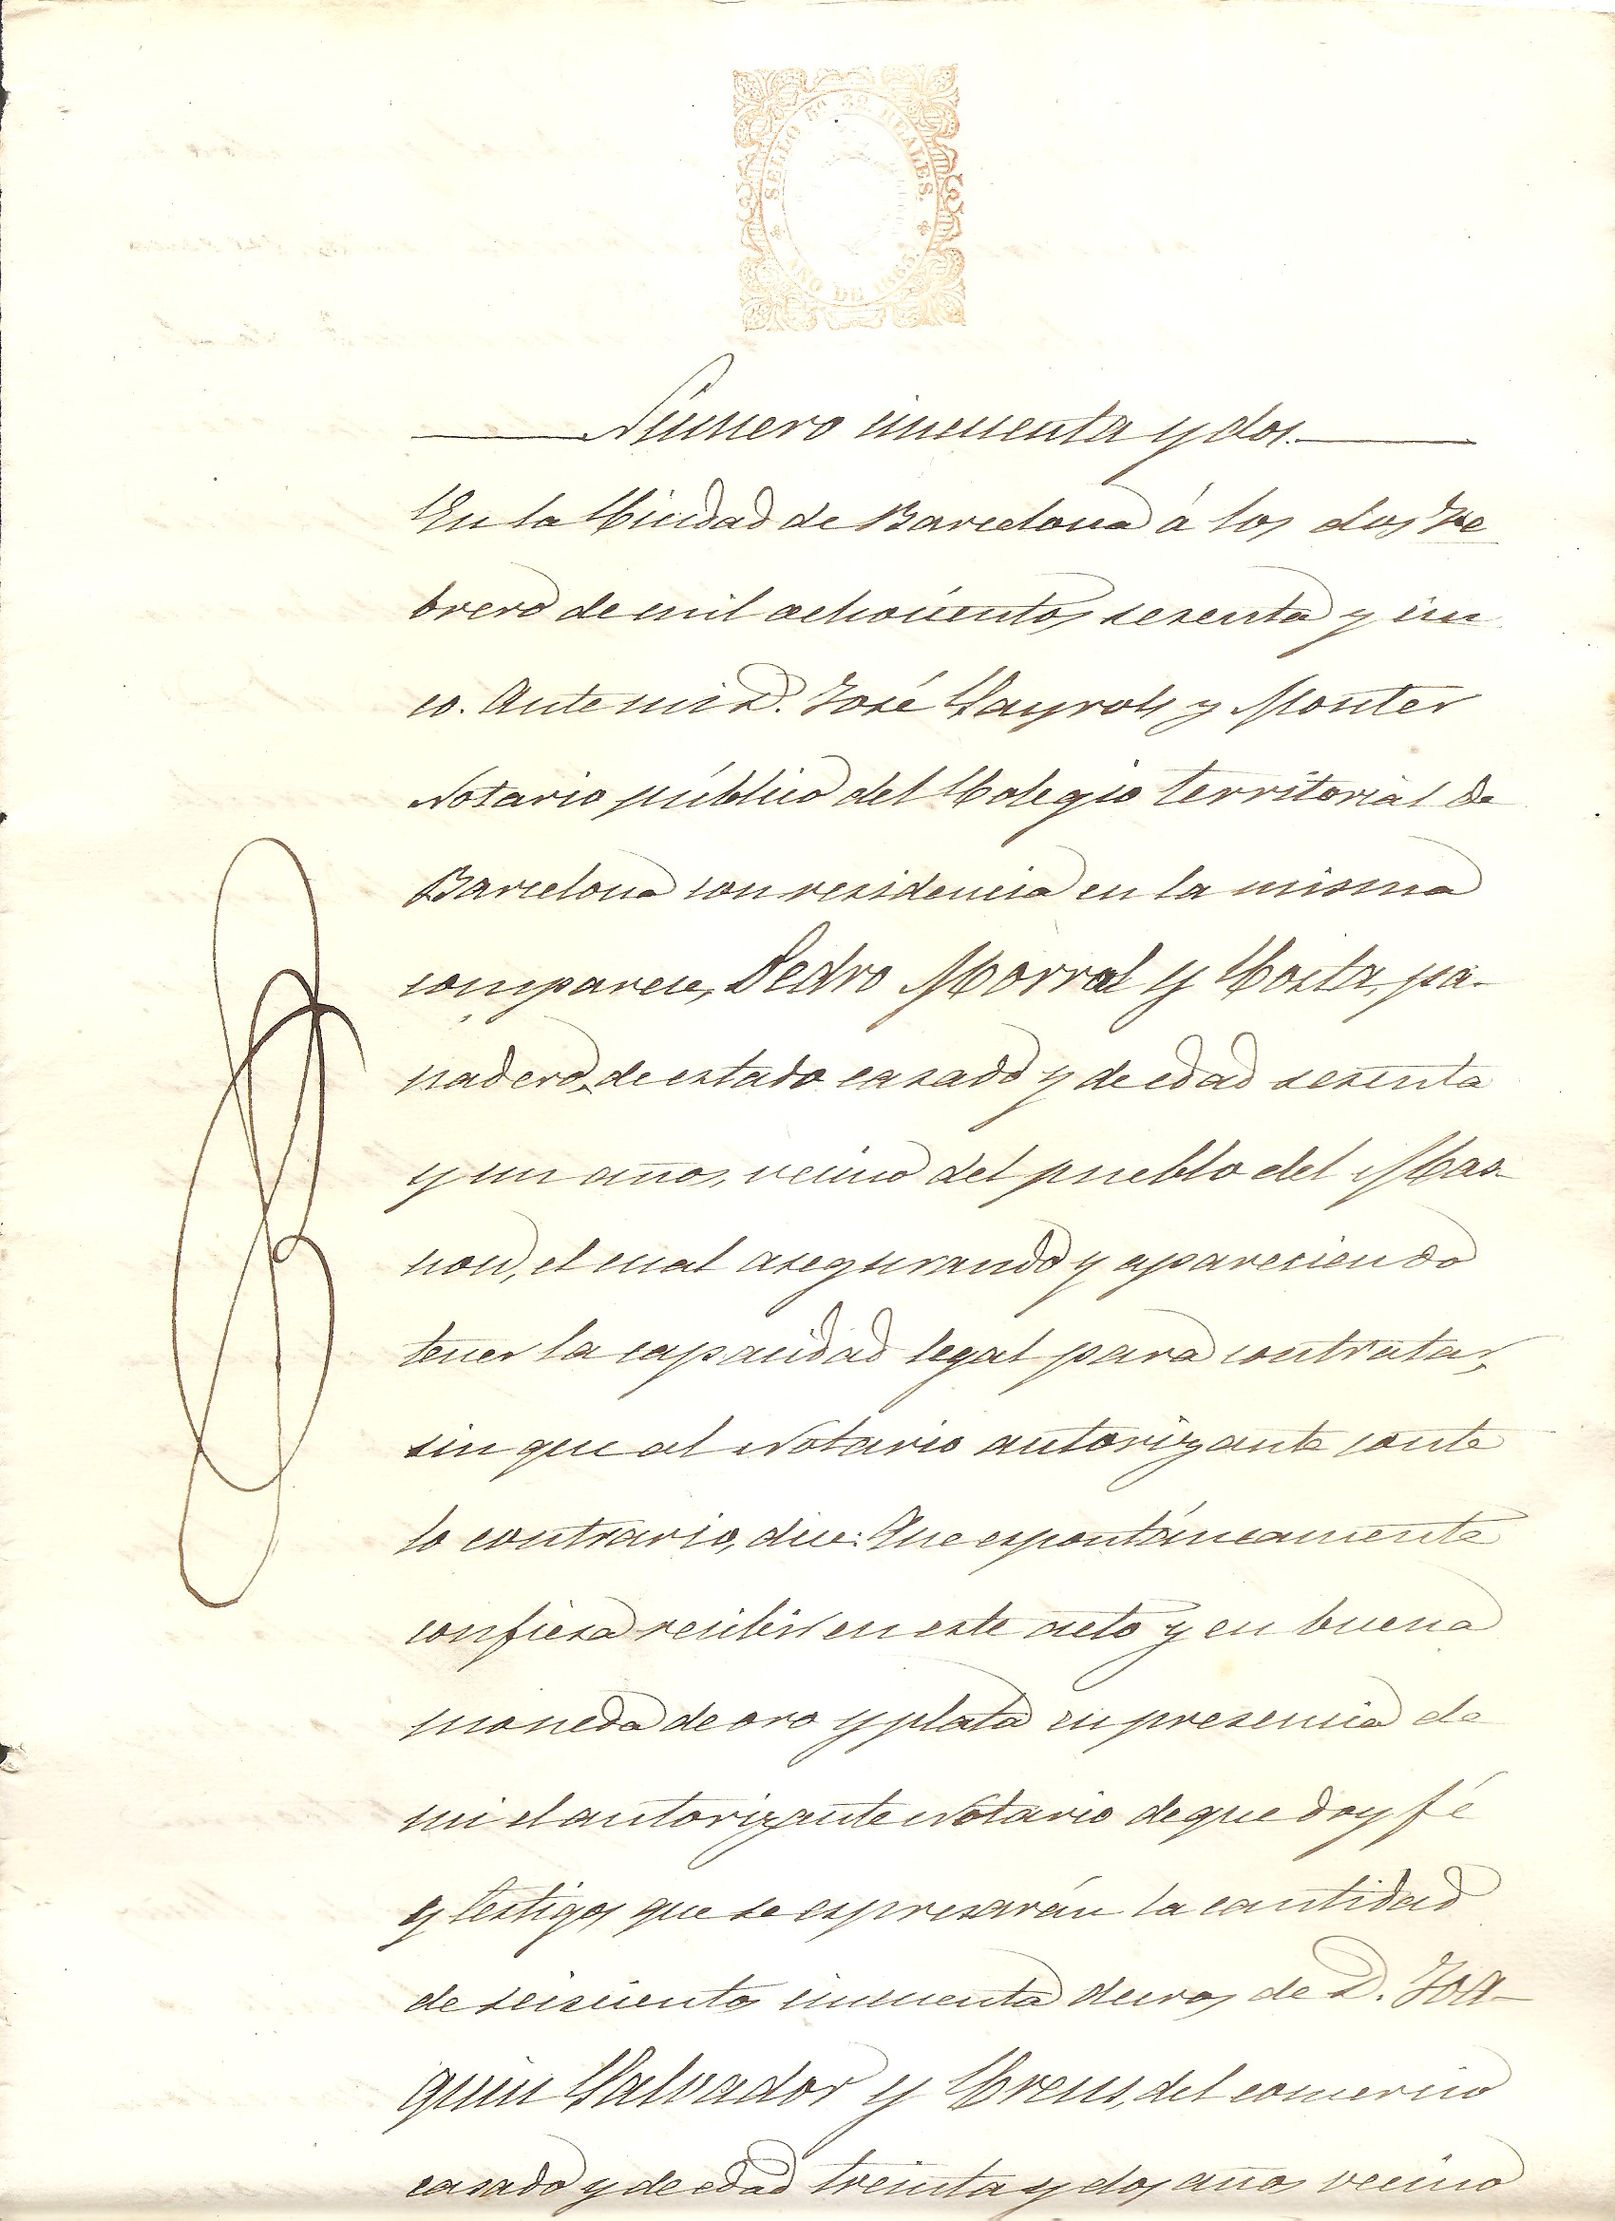 SELLO 5º 32 REALES.
AÑO DE 1865.
Número cincuenta y dos.
En la Ciudad de Barcelona á los dos Fe
brero de mil ochocientos sesenta y cin
co. Ante mi D. José Sayrols y Monter
Notario público del Colegio territorial de
Barcelona con residencia en la misma
comparece, Pedro Morral y Costa, pa-
nadero, de estado casado y de edad sesenta
y un años, vecino del pueblo del Mas-
nou, el cual asegurando y apareciendo
tener la capacidad legal para contratar,
sin que al Notario autorizante conste
lo contrario, dice: Que espontáneamente
confiesa recibir en este acto y en buena
moneda de oro y plata en presencia de
mi el autorizante Notario de que doy fé
y testigos que se espresarán la cantidad
de seiscientos cincuenta duros de D. Joa-
quin Salvador y Creus, del comercio
casado y de edad treinta y dos años vecino